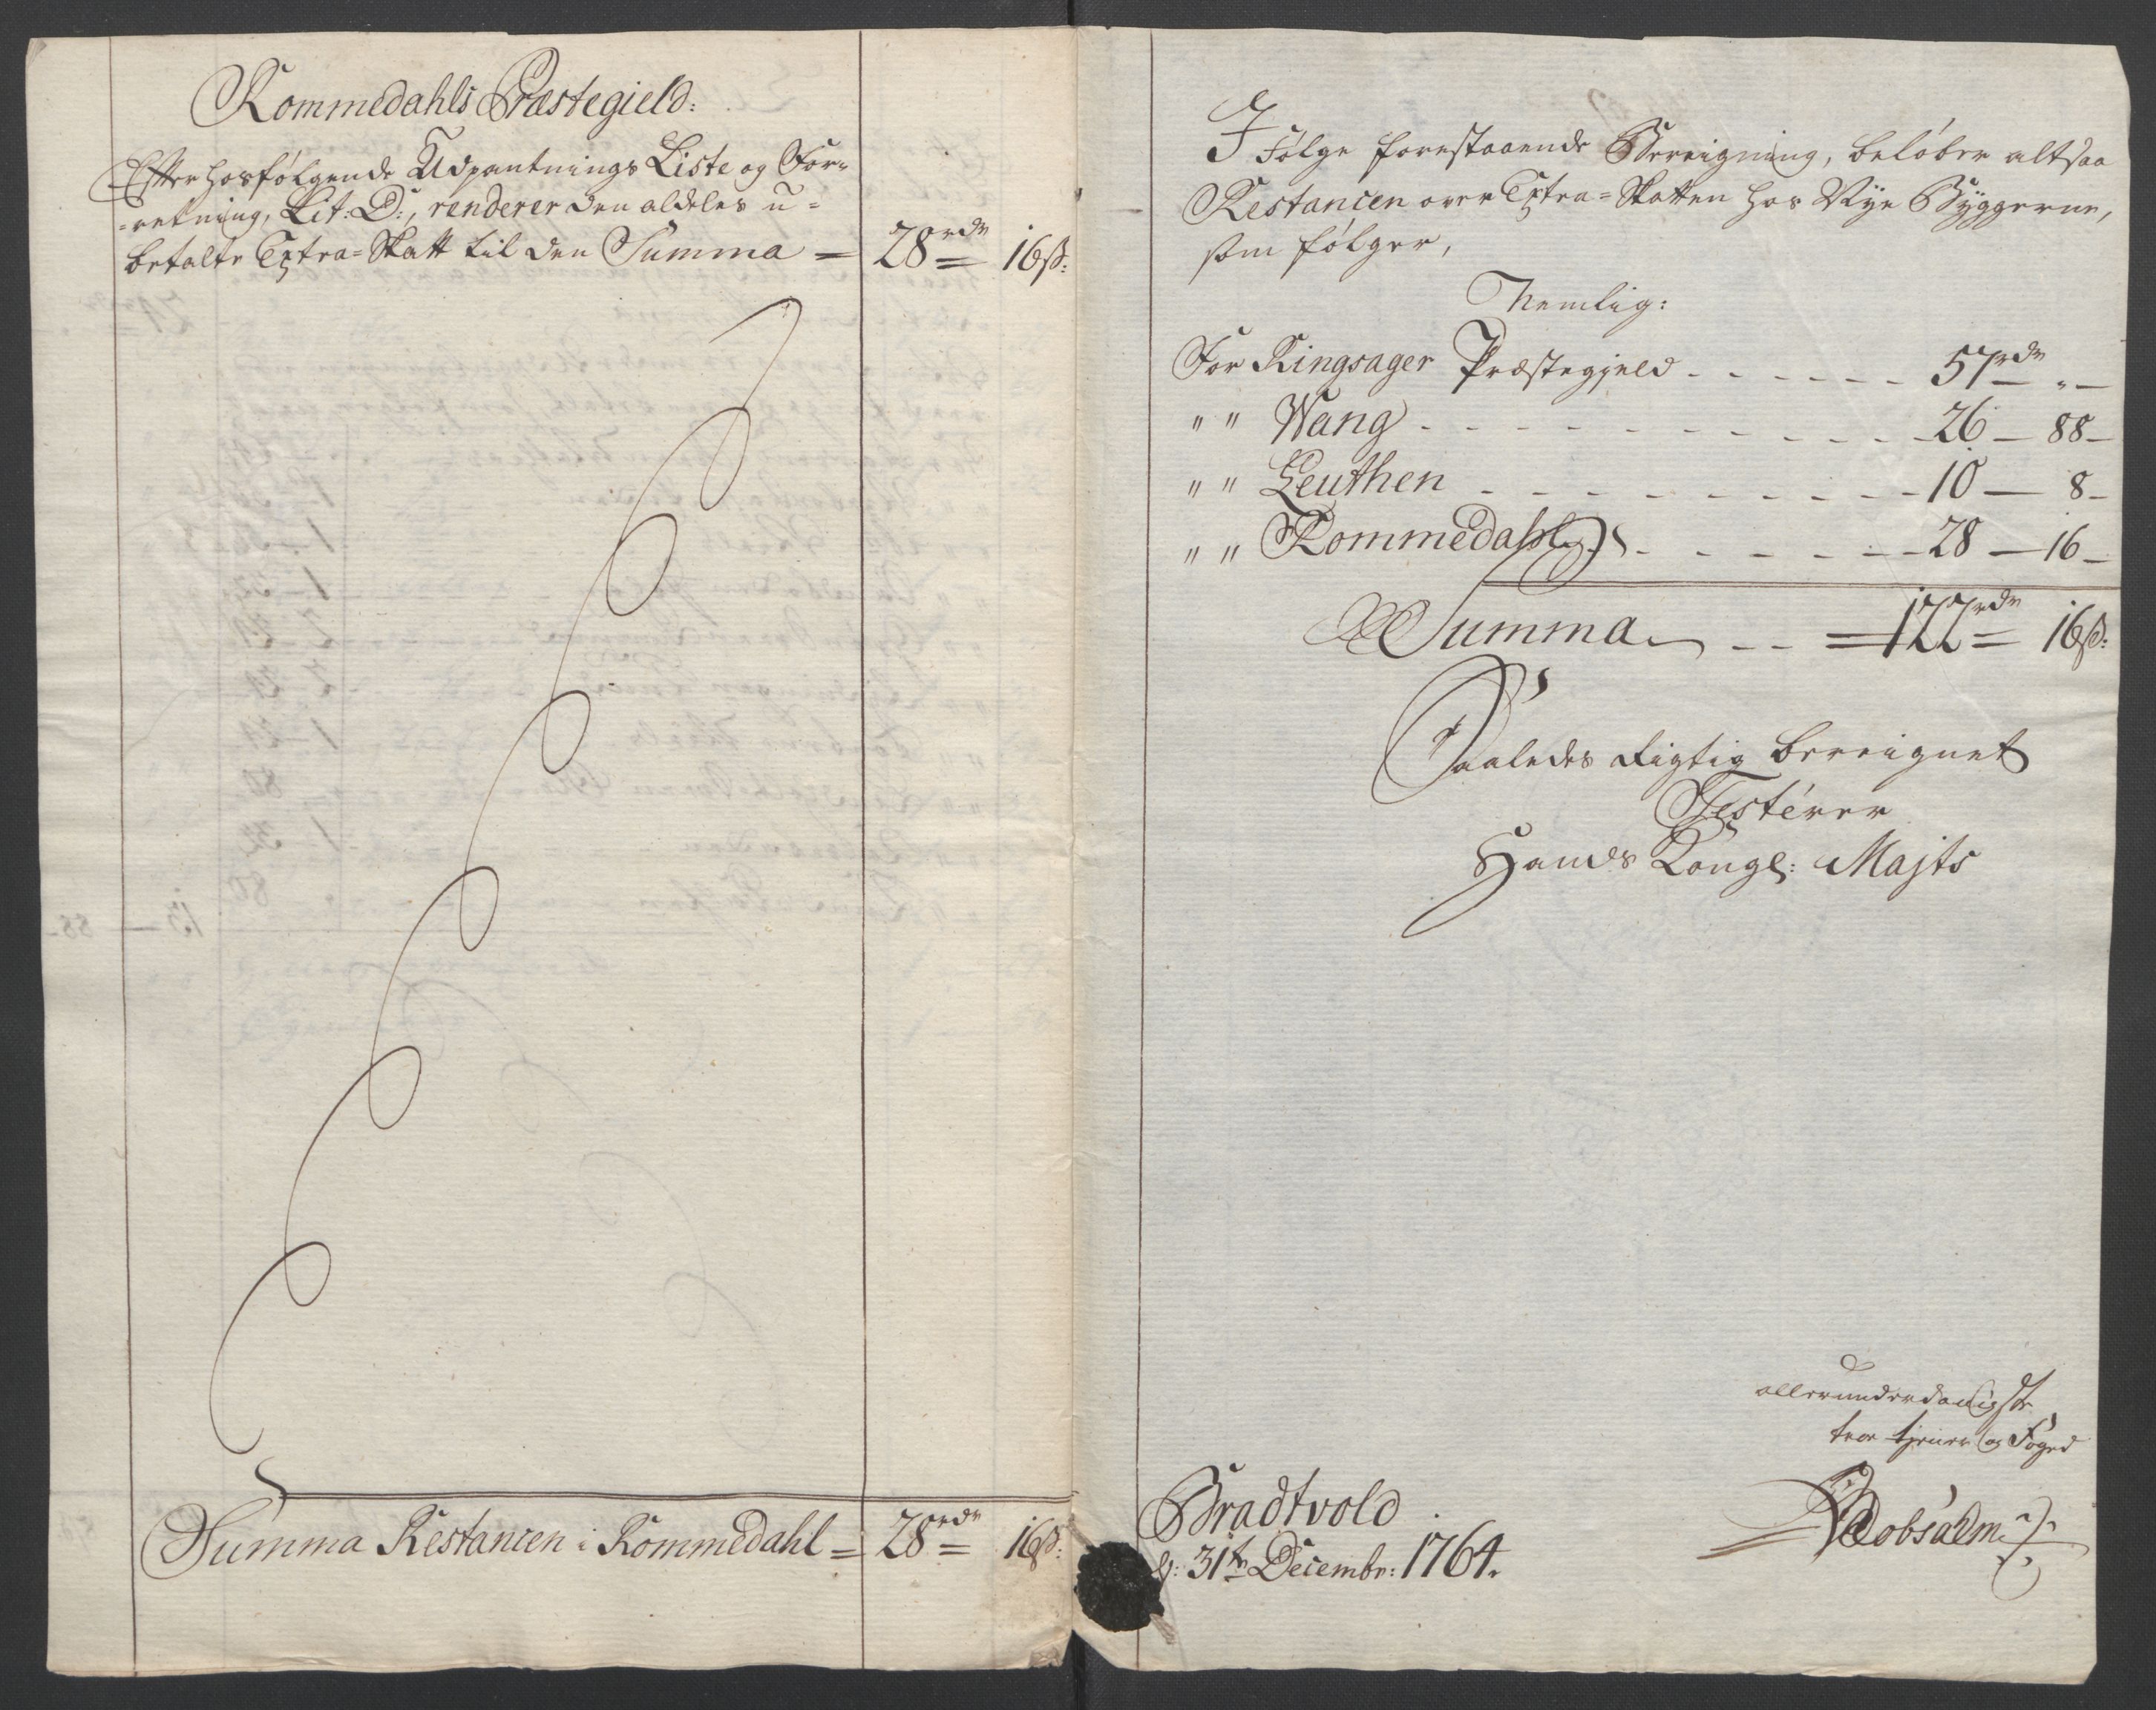 Rommedahls Præstegield:
Efter hosfølgende Udpantnings Liste og For-
-retning, Lit: D:, renderer den aldeles u-
betalte Extra-Skatt til den Summa = 28rdr = 16ß:
Summa Restancen i Rommedahl = 28rdr = 16ß:
I Følge forestaaende Bereigning, beløber altsaa
Restancen over Extra-Skatten hos Nye Byggerne,
som følger,
Nemlig:
For Ringsager Præstegjeld - - - - - - 57rdr " -
" " Wang - - - - - - - - - - - 26 - 88 -
" " Leuthen - - - - - - - - - - 10 - 8 -
" " Rommedahl - - - - - - - 28 - 16 -
Summa - - = 122rdr = 16ß:
Saaledes Rigtig bereignet
Testérer
Hands Kongl: Majts
allerunderdanigste
troe tjener og Foged
Bradtvold
d: 31te Decembr: 1764.